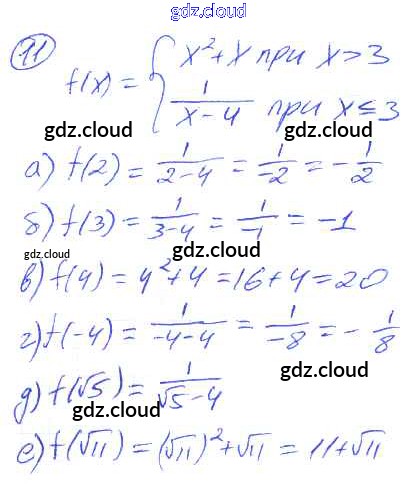 gdz.cloud
11
f(x) = { x²+x при x>3
1/(x-4) при x≤3
gdz.cloud gdz.cloud
а) f(2) = 1/(2-4) = 1/-2 = -1/2
б) f(3) = 1/(3-4) = 1/-1 = -1
gdz.cloud gdz.cloud
в) f(4) = 4²+4 = 16+4 = 20
г) f(-4) = 1/(-4-4) = 1/-8 = -1/8
gdz.cloud
д) f(√5) = 1/(√5-4)
gdz.cloud gdz.cloud
е) f(√11) = (√11)²+√11 = 11+√11